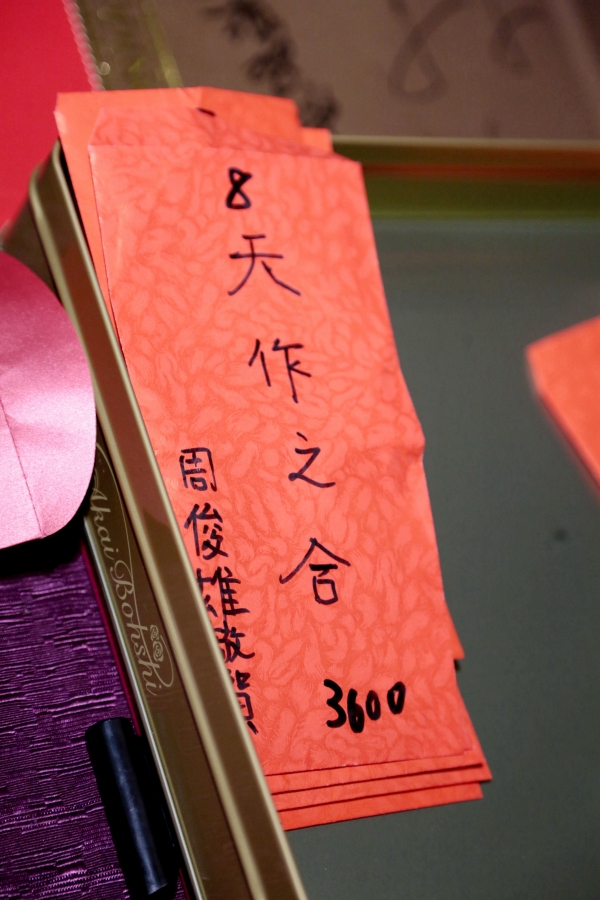 8
天作之合
周俊雄敬賀
3600
Akai Bohshi